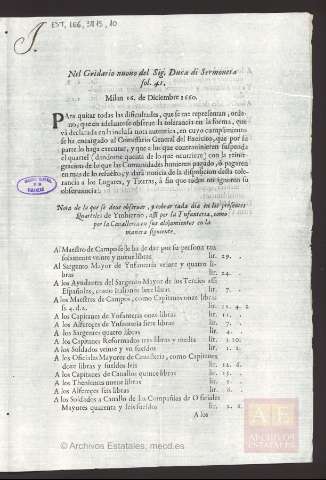 EST, 166, 3815, 10
Nel Gridario nuouo del Sig. Duca di Sermoneta
fol. 41.
Milan 16. de Diciembre 1660.
PAra quitar todas las dificultades, que se me representan, ordeno,
que en adelante se obserue la tolerancia en la forma, que
và declarada en la inclusa nota autentica, en cuyo cumplimiento
se ha encargado al Comissario General del Exercito, que por su
parte lo haga executar, y que a los que contrauinieren suspenda
el quartel (dandome quenta de lo que ocurriere) con la reintegracion
de lo que las Comunidades huuieren pagado, ò pagaren
en mas de lo resuelto, y darà noticia de la disposicion desta tolerancia
a los Lugares, y Tierras, à fin que todos no ignoren su
obseruancia.
Nota de lo que se deve observar, y cobrar cada dia en los presentes
Quarteles de Ynbierno, assi por la Ynfanteria, como
por la Cavalleria en sus alojamientos en la
manera siguiente.
Al Maestro de Campo se le ha de dar por su persona tan
solamente veinte y nueue libras lir. 29.
Al Sargento Mayor de Ynfanteria veinte y quatro libras
lir. 24.
A los Ayudantes del Sargento Mayor de los Tercios assi
Españoles, como Italianos siete libras lir. 7.
A los Maestros de Campo, como Capitanes onze libras
lir. 11. 4. 2
A los Capitanes de Ynfanteria onze libras lir. 11.
A los Alferezes de Ynfanteria siete libras lir. 7.
A los Sargentos quatro libras lir. 4.
A los Capitanes Reformados tres libras y media lir. 3. 10.
A los Soldados veinte y un sueldos lir. 1. 1.
A los Oficiales Mayores de Caualleria, como Capitanes
doze libras y sueldos seis lir. 12. 6.
A los Capitanes de Cauallos quince libras lir. 15.
A los Thenientes nueue libras lir. 9.
A los Alferezes seis libras lir. 6.
A los Soldados a Cauallo de las Compañias de Oficiales
Mayores quarenta y seis sueldos lir. 2. 6.
A los
© Archivos Estatales, mecd.es
ARCHIVOS
ESTATALES